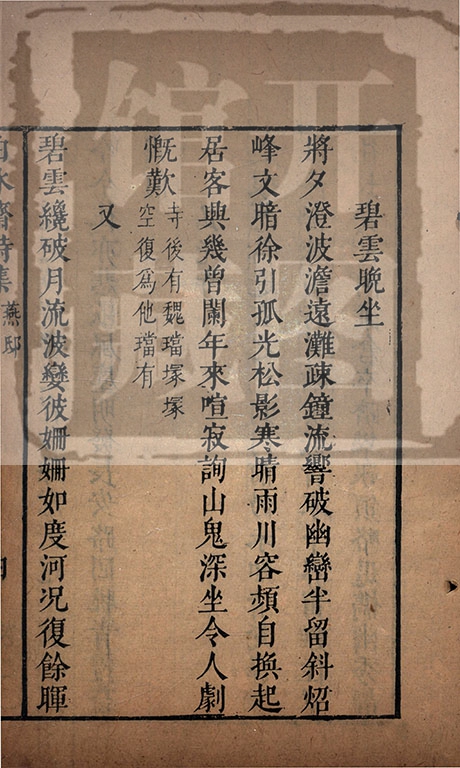 碧雲晚坐
將夕澄波澹遠灘疎鐘流響破幽巒半留斜炤
峰文暗徐引孤光松影寒晴雨川容頻自換起
居客興幾曾闌年來喧寂詢山鬼深坐令人劇
慨歎
寺後有魏璫塚塚
空復爲他璫有
又
碧雲纔破月流波孌彼姍姍如度河况復餘暉
水齋詩集 燕邸